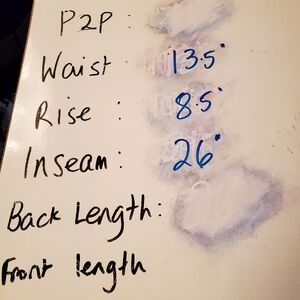 P2P :
Waist 13.5"
Rise : 8.5"
Inseam : 26"
Back Length:
Front length